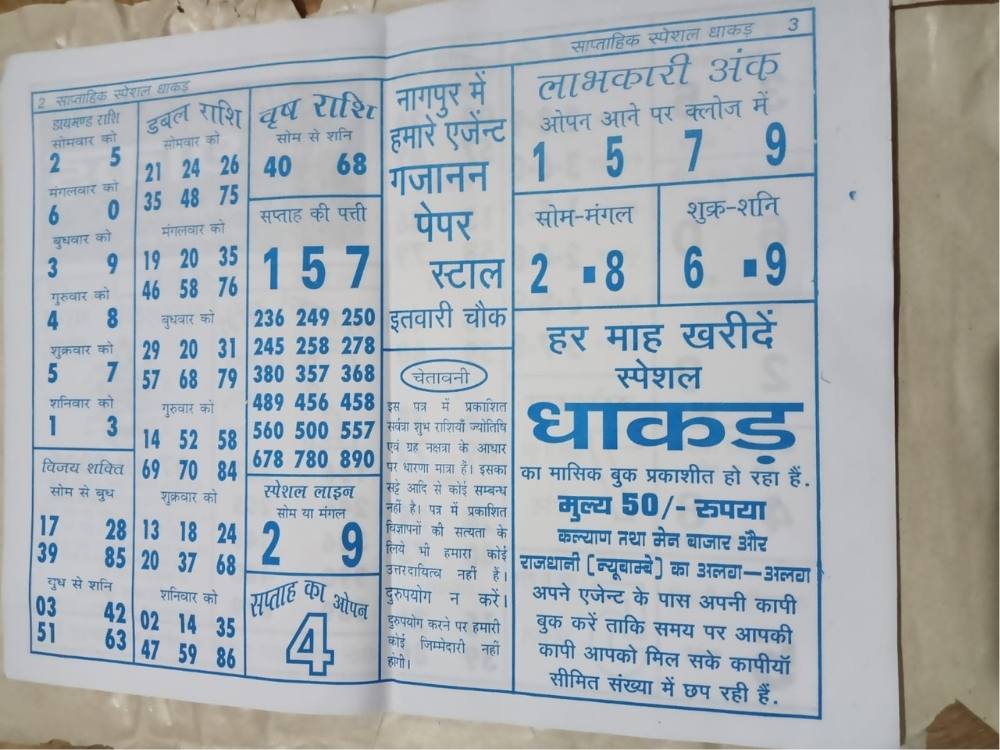 2 साप्ताहिक स्पेशल धाकड़
डायमण्ड राशि
सोमवार को
2 5
मंगलवार को
6 0
बुधवार को
3 9
गुरुवार को
4 8
शुक्रवार को
5 7
शनिवार को
1 3
विजय शक्ति
सोम से बुध
17 28
39 85
बुध से शनि
03 42
51 63
डबल राशि
सोमवार को
21 24 26
35 48 75
मंगलवार को
19 20 35
46 58 76
बुधवार को
29 20 31
57 68 79
गुरुवार को
14 52 58
69 70 84
शुक्रवार को
13 18 24
20 37 68
शनिवार को
02 14 35
47 59 86
वृष राशि
सोम से शनि
40 68
सप्ताह की पत्ती
1 5 7
236 249 250
245 258 278
380 357 368
489 456 458
560 500 557
678 780 890
स्पेशल लाइन
सोम या मंगल
2 9
सप्ताह का ओपन
4
नागपुर में
हमारे एजेन्ट
गजानन
पेपर
स्टाल
इतवारी चौक
चेतावनी
इस पत्र में प्रकाशित
सर्वत्रा शुभ राशियाँ ज्योतिषि
एवं ग्रह नक्षत्रा के आधार
पर धारणा मात्रा हैं। इसका
सट्टे आदि से कोई सम्बन्ध
नहीं है। पत्र में प्रकाशित
विज्ञापनों की सत्यता के
लिये भी हमारा कोई
उत्तरदायित्व नहीं हैं।
दुरुपयोग न करें।
दुरुपयोग करने पर हमारी
कोई जिम्मेदारी नहीं
होगी।
साप्ताहिक स्पेशल धाकड़ 3
लाभकारी अंक
ओपन आने पर क्लोज में
1 5 7 9
सोम-मंगल
2 ▪8
शुक्र-शनि
6 ▪9
हर माह खरीदें
स्पेशल
धाकड़
का मासिक बुक प्रकाशीत हो रहा हैं.
मुल्य 50/- रुपया
कल्याण तथा मेन बाजार और
राजधानी (न्यूबाम्बे) का अलग—अलग
अपने एजेन्ट के पास अपनी कापी
बुक करें ताकि समय पर आपकी
कापी आपको मिल सके कापीयाँ
सीमित संख्या में छप रही हैं.